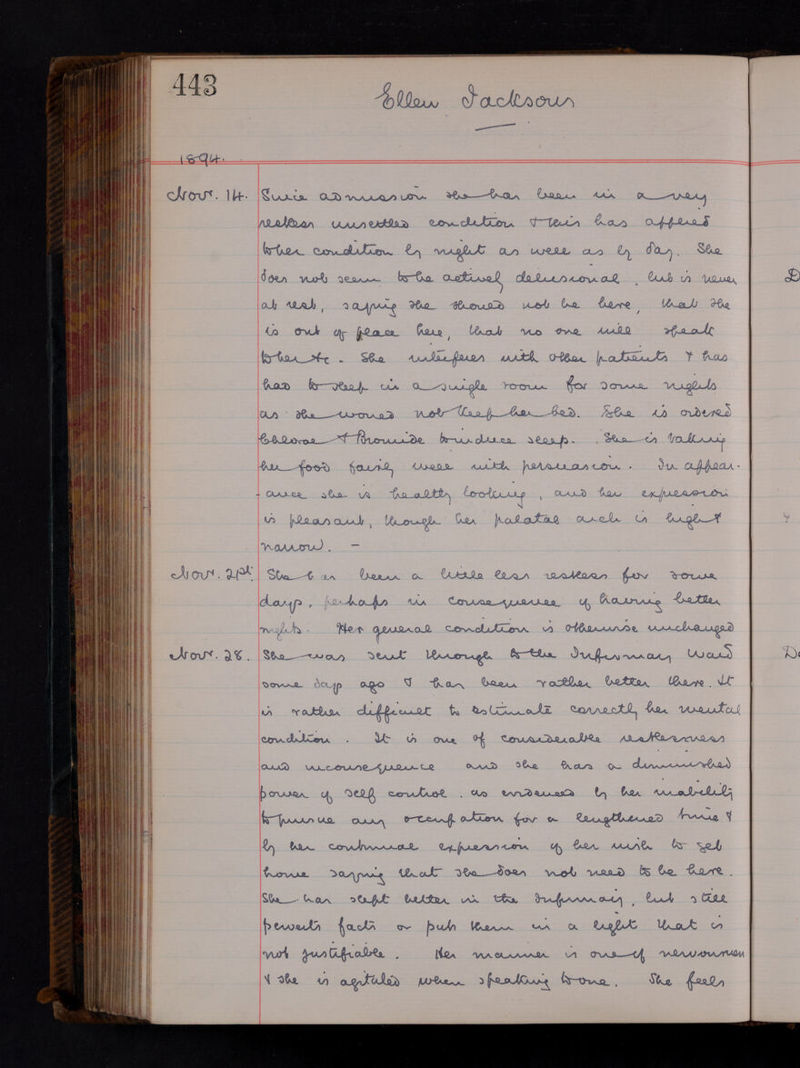 443
Ellen Jackson
1894.
Nov. 14. Since admission she has been in a very
restless unsettled condition & this has affected
to her condition by night as well as by day. She
does not seem to be actively delusional, but is never
at rest, saying she should not be here, that she
is out of place here, that no one will speak
to her &c. She interferes with other patients & has
had to sleep in a single room for some nights
as she would not keep her bed. She is ordered
Chloral & Bromide to induce sleep. She is taking
her food fairly well with persuasion. In appear-
ance she is healthy looking, and her expression
is pleasant, though her palatal arch is high &
narrow. —
Nov. 21st. She has been a little less restless for some
days, perhaps in consequence of having better
nights. Her general condition is otherwise unchanged
Nov. 28. She was sent through to the Infirmary Ward
some days ago & has been rather better there. It
is rather difficult to estimate correctly her mental
condition. It is one of considerable restlessness
and inconsequence and she has a diminished
power of self control, as evidenced by her inability
to pursue any occupation for a lengthened time &
by her continual expression of her wish to get
home saying that she does not need to be here.
She has slept better in the Infirmary, but still
perverts facts or puts them in a light that is
not justifiable. Her manner is one of nervousness
& she is agitated when speaking to one. She feels